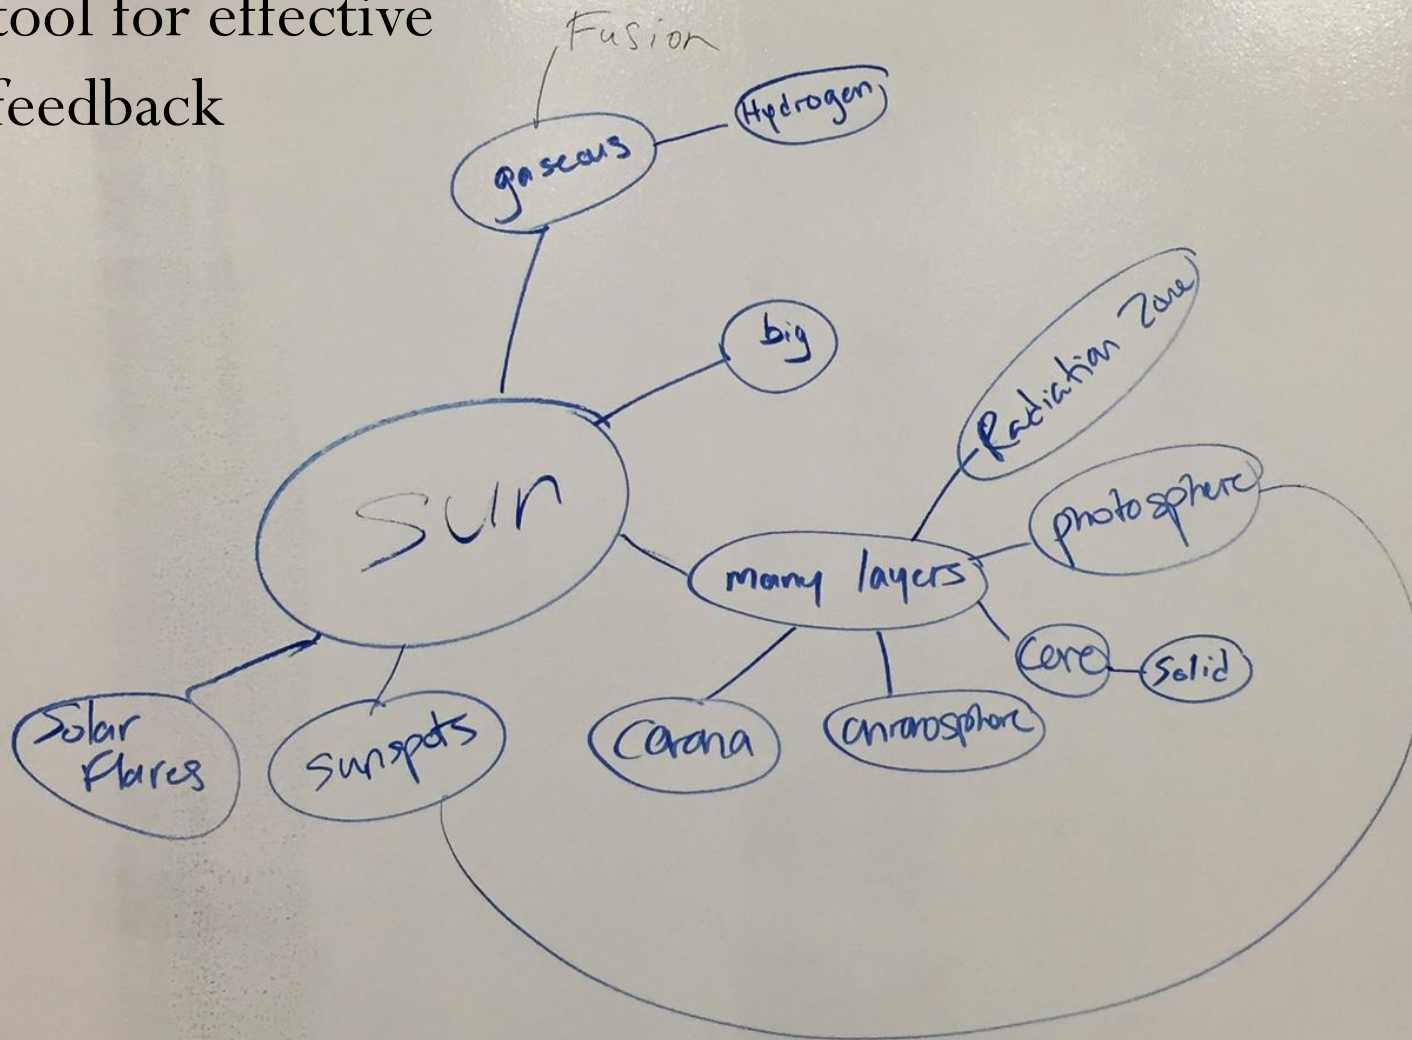 tool for effective
feedback
Fusion
Hydrogen
gaseous
big
Radiation Zone
sun
photosphere
many layers
Core
Solid
Solar
Flares
sunspots
Corona
chromosphere